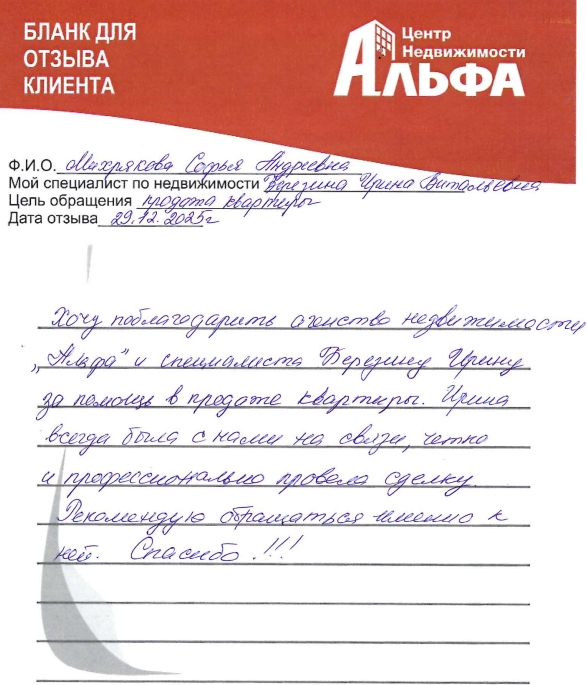 БЛАНК ДЛЯ
ОТЗЫВА
КЛИЕНТА
Центр
Недвижимости
АЛЬФА
Ф.И.О. Махрякова Софья Андреевна
Мой специалист по недвижимости Березина Ирина Витальевна
Цель обращения продажа квартиры
Дата отзыва 29.12.2025г
Хочу поблагодарить агенство недвижимости
„Альфа" и специалиста Березину Ирину
за помощь в продаже квартиры. Ирина
всегда была с нами на связи, четко
и профессионально провела сделку.
Рекомендую обращаться именно к
ней. Спасибо!!!